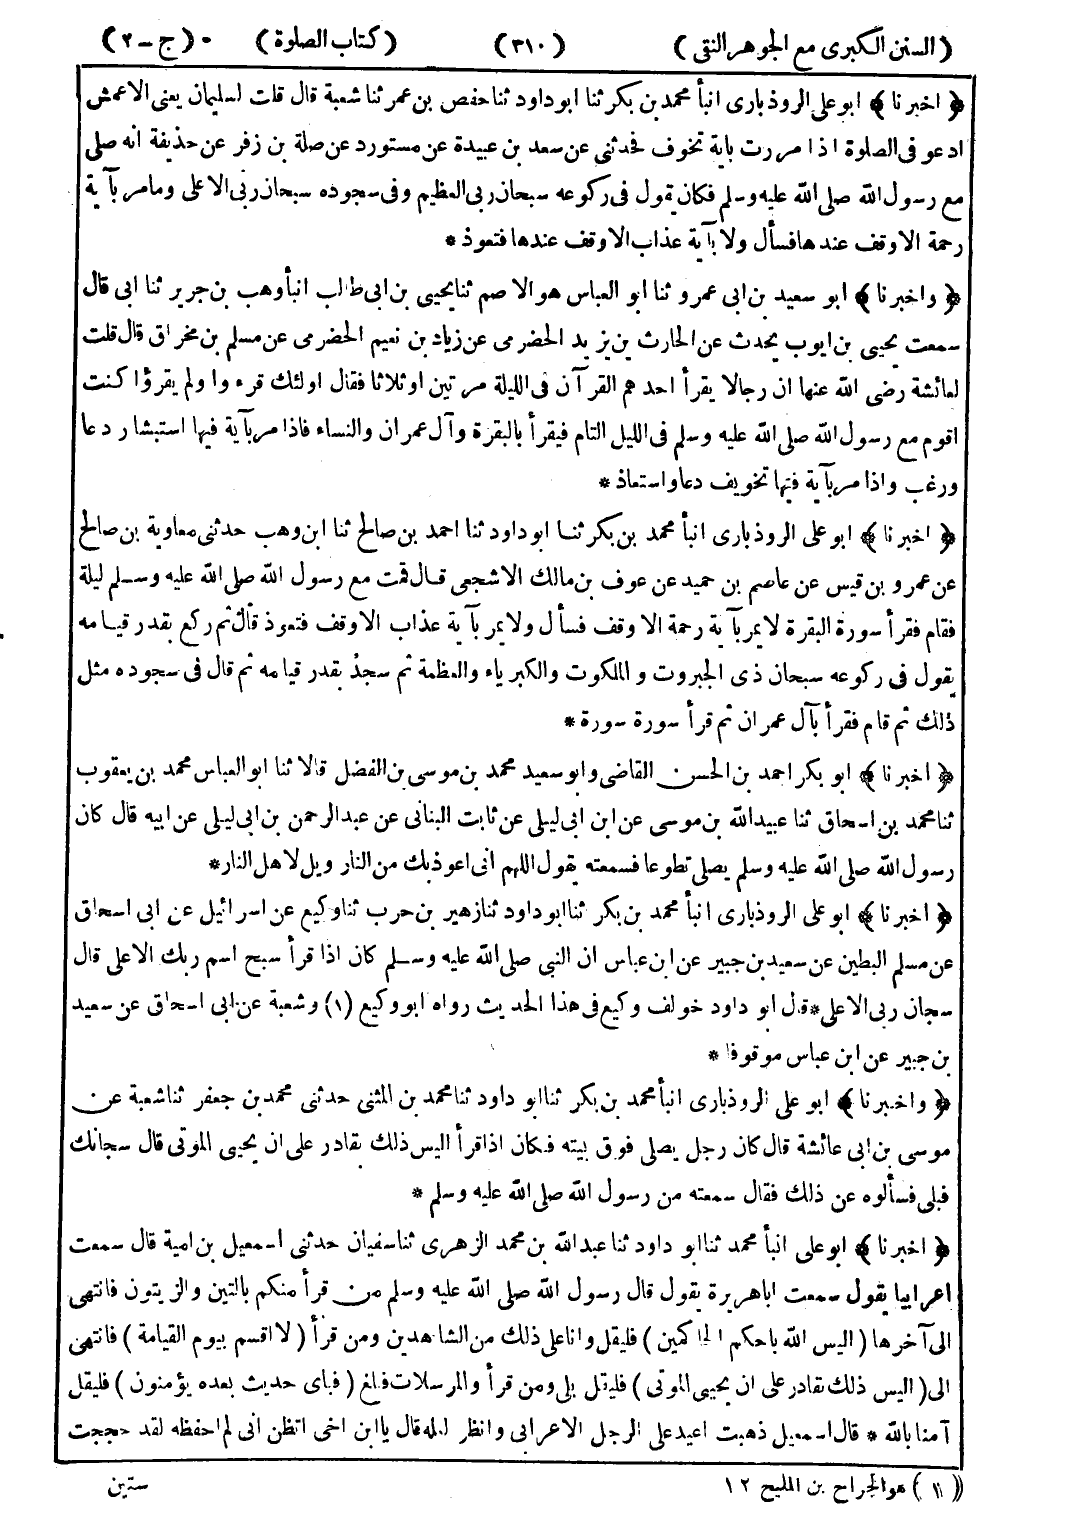 (السنن الكبرى مع الجوهر النقى) (٣١٠) (كتاب الصلوة) (ج-٢)
﴿اخبرنا﴾ ابو على الروذبارى انبأ محمد بن بكر ثنا ابو داود ثنا حفص بن عمر ثنا شعبة قال قلت لسليمان يعنى الاعمش
ادعو فى الصلوة اذا مررت باية تخوف فحدثنى عن سعد بن عبيدة عن مستورد عن صلة بن زفر عن حذيفة انه صلى
مع رسول الله صلى الله عليه وسلم فكان يقول فى ركوعه سبحان ربى العظيم وفى سجوده سبحان ربى الاعلى ومامر بآية
رحمة الاوقف عندها فسأل ولا بآية عذاب الاوقف عندها فتعوذ *
﴿واخبرنا﴾ ابو سعيد بن ابى عمرو ثنا ابو العباس هو الاصم ثنا يحيى بن ابى طالب انبأ وهب بن جرير ثنا ابى قال
سمعت يحيى بن ايوب يحدث عن الحارث بن يزيد الحضرمى عن زياد بن نعيم الحضرمى عن مسلم بن مخراق قال قلت
لعائشة رضى الله عنها ان رجالا يقرأ احدهم القرآن فى الليلة مرتين او ثلاثا فقال اولئك قرءوا ولم يقرؤا كنت
اقوم مع رسول الله صلى الله عليه وسلم فى الليل التام فيقرأ بالبقرة وآل عمران والنساء فاذا مر بآية فيها استبشار دعا
ورغب واذا مر بآية فيها تخويف دعا واستعاذ *
﴿اخبرنا﴾ ابو على الروذبارى انبأ محمد بن بكر ثنا ابو داود ثنا احمد بن صالح ثنا ابن وهب حدثنى معاوية بن صالح
عن عمرو بن قيس عن عاصم بن حميد عن عوف بن مالك الاشجعى قال قمت مع رسول الله صلى الله عليه وسلم ليلة
فقام فقرأ سورة البقرة لا يمر بآية رحمة الا وقف فسأل ولا يمر بآية عذاب الاوقف فتعوذ قال ثم ركع بقدر قيامه
يقول فى ركوعه سبحان ذى الجبروت والملكوت والكبرياء والعظمة ثم سجد بقدر قيامه ثم قال فى سجوده مثل
ذلك ثم قام فقرأ بآل عمران ثم قرأ سورة سورة *
﴿اخبرنا﴾ ابو بكر احمد بن الحسن القاضى وابو سعيد محمد بن موسى بن الفضل قالا ثنا ابو العباس محمد بن يعقوب
ثنا محمد بن اسحاق ثنا عبيد الله بن موسى عن ابن ابى ليلى عن ثابت البنانى عن عبد الرحمن بن ابى ليلى عن ابيه قال كان
رسول الله صلى الله عليه وسلم يصلى تطوعا فسمعته يقول اللهم انى اعوذبك من النار ويل لاهل النار*
﴿اخبرنا﴾ ابو على الروذبارى انبأ محمد بن بكر ثنا ابو داود ثنا زهير بن حرب ثنا وكيع عن اسرائيل عن ابى اسحاق
عن مسلم البطين عن سعيد بن جبير عن ابن عباس ان النبى صلى الله عليه وسلم كان اذا قرأ سبح اسم ربك الاعلى قال
سبحان ربى الاعلى*قال ابو داود خولف وكيع فى هذا الحديث رواه ابو وكيع (١) وشعبة عن ابى اسحاق عن سعيد
بن جبير عن ابن عباس موقوفا *
﴿واخبرنا﴾ ابو على الروذبارى انبأ محمد بن بكر ثنا ابو داود ثنا محمد بن المثنى حدثنى محمد بن جعفر ثنا شعبة عن
موسى بن ابى عائشة قال كان رجل يصلى فوق بيته فكان اذا قرأ اليس ذلك بقادر على ان يحيى الموتى قال سبحانك
فبلى فسألوه عن ذلك فقال سمعته من رسول الله صلى الله عليه وسلم *
﴿اخبرنا﴾ ابو على انبأ محمد ثنا ابو داود ثنا عبد الله بن محمد الزهرى ثنا سفيان حدثنى اسمعيل بن امية قال سمعت
اعرابيا يقول سمعت اباهريرة يقول قال رسول الله صلى الله عليه وسلم من قرأ منكم بالتين والزيتون فانتهى
الى آخرها (اليس الله باحكم الحاكمين) فليقل وانا على ذلك من الشاهدين ومن قرأ (لا اقسم بيوم القيامة) فانتهى
الى (اليس ذلك بقادر على ان يحيى الموتى) فليقل بلى ومن قرأ والمرسلات فبلغ (فباى حديث بعده يؤمنون) فليقل
آمنا بالله * قال اسمعيل ذهبت اعيد على الرجل الاعرابى وانظر لعله قال يا ابن اخى اتظن انى لم احفظه لقد حججت
(١) هو الجراح بن المليح ١٢ ستين